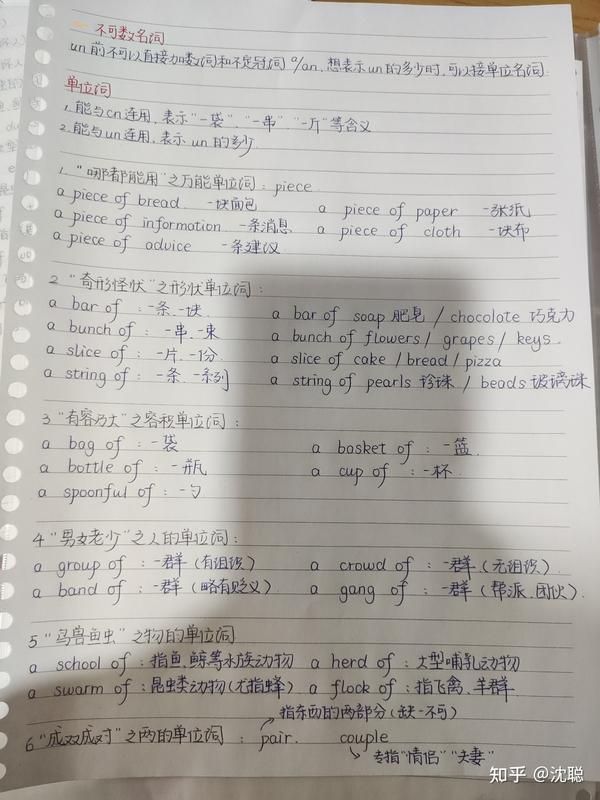 一 不可数名词
un 前不可以直接加数词和不定冠词 a/an, 想表示 un 的多少时, 可以接单位名词:
单位词
1. 能与 cn 连用, 表示"一袋"、"一串"、"一斤"等含义
2. 能与 un 连用, 表示 un 的多少.
1. "哪都能用"之万能单位词: piece
a piece of bread 一块面包 a piece of paper 一张纸
a piece of information 一条消息 a piece of cloth 一块布
a piece of advice 一条建议
2 "奇形怪状"之形状单位词:
a bar of : 一条、一块 a bar of soap 肥皂 / chocolate 巧克力
a bunch of : 一串、一束 a bunch of flowers / grapes / keys.
a slice of : 一片、一份 a slice of cake / bread / pizza
a string of : 一条、一系列 a string of pearls 珍珠 / beads 玻璃珠
3 "有容乃大"之容积单位词:
a bag of : 一袋 a basket of : 一篮
a bottle of : 一瓶 a cup of : 一杯
a spoonful of : 一勺
4 "男女老少"之人的单位词:
a group of : 一群 (有组织) a crowd of : 一群 (无组织)
a band of : 一群 (略有贬义) a gang of : 一群 (帮派、团伙)
5 "鸟兽鱼虫"之物的单位词
a school of : 指鱼、鲸等水族动物 a herd of : 大型哺乳动物
a swarm of : 昆虫类动物 (尤指蜂) a flock of : 指飞禽、羊群
指东西的两部分 (缺一不可)
6 "成双成对"之两的单位词 : pair. couple
专指"情侣""夫妻"
知乎 @沈聪